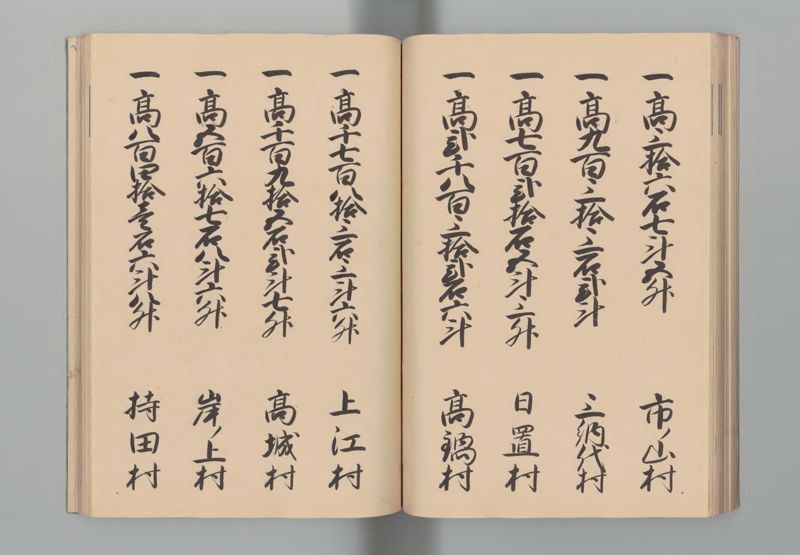 一高三拾六石七斗五升 市ノ山村
一高九百三拾三石弐斗 三納代村
一高七百弐拾石五斗三升 日置村
一高弐千八百三拾弐石六斗 高鍋村
一高千七百八拾三石三斗六升 上江村
一高千百九拾五石弐斗七升 高城村
一高五百六拾七石八斗六升 岸ノ上村
一高八百四拾壱石六斗八升 持田村